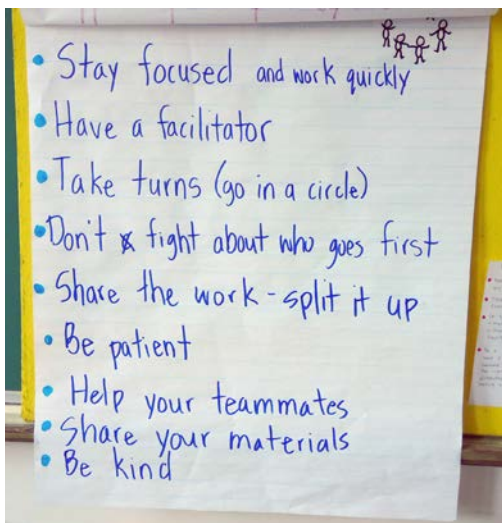 • Stay focused and work quickly
• Have a facilitator
• Take turns (go in a circle)
• Don't fight about who goes first
• Share the work - split it up
• Be patient
• Help your teammates
• Share your materials
• Be kind